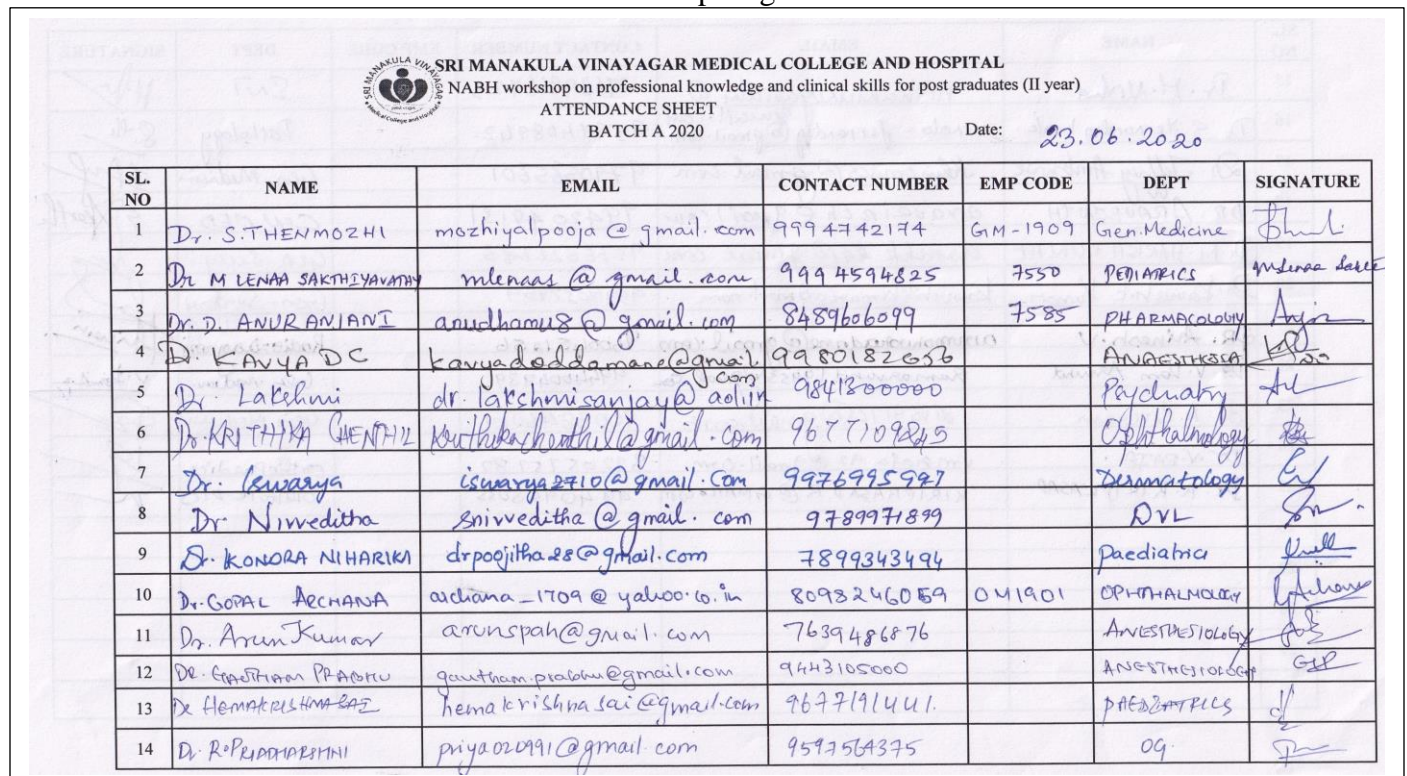 SRI MANAKULA VINAYAGAR MEDICAL COLLEGE AND HOSPITAL
NABH workshop on professional knowledge and clinical skills for post graduates (II year)
ATTENDANCE SHEET
BATCH A 2020 Date: 23.06.2020
SL. NO NAME EMAIL CONTACT NUMBER EMP CODE DEPT SIGNATURE
1 Dr. S. THENMOZHI mozhiyalpooja @ gmail.com 9994742174 GM-1909 Gen. Medicine
2 Dr M LENAA SAKTHIYAVATHY mlenaas @ gmail.com 9994594825 7550 PEDIATRICS
3 Dr. D. ANURANJANI anudhamu8 @ gmail.com 8489606099 7585 PHARMACOLOGY
4 Dr KAVYA DC kavyadoddamane@gmail.com 9980182656
5 Dr. Lakshmi dr.lakshmisanjay@aol.in 9841300000 Psychiatry
6 Dr. KRITHIKA CHENTHIL krithikachenthil@gmail.com 9677109845 Ophthalmology
7 Dr. Iswarya iswarya2710@gmail.com 9976995997 Dermatology
8 Dr. Nivveditha snivveditha @ gmail.com 9789971899 DVL
9 Dr. KONDRA NIHARIKA drpoojitha28@gmail.com 7899343494 Paediatrics
10 Dr. GOPAL ARCHANA archana_1709 @ yahoo.co.in 8098246059 OM1901 OPHTHALMOLOGY
11 Dr. Arun Kumar arunspah@gmail.com 7639486876 ANESTHESIOLOGY
12 DR. GAUTHAM PRABHU gautham.prabhu@gmail.com 9443105000 ANESTHESIOLOGY
13 Dr HEMAKRISHNA SAI hemakrishnasai@gmail.com 9677191441. PAEDIATRICS
14 Dr. R. PRIADHARSHNI priya020991@gmail.com 9597564375 OG.